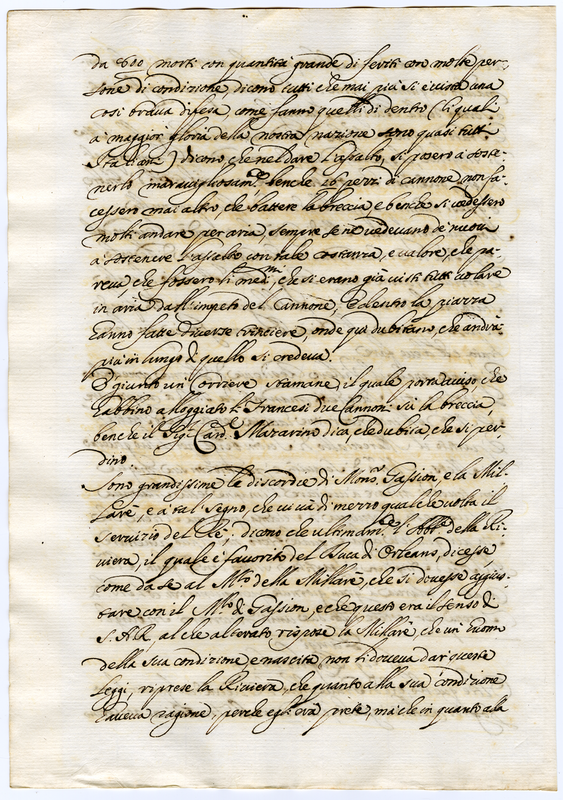 da 600 morti con quantità grande di feriti con molte per-
sone di condizione dicono tutti che mai più si è vista una
cosi brava difesa, come fanno quelli di dentro (li quali
a maggior gloria della nostra nazione sono quasi tutti
Italiani) dicono che nel dare l'assalto, si posero a soste-
nerlo maravigliosam.te benche 26 pezzi di cannone non fa-
cessero mai altro, che battere la breccia e benche si vedessero
molti andare per aria, sempre se ne vedevano de' nuovi
a sostenere l'assalto con tale costanza, e valore, che pa-
reva, che fossero li med.mi, che si erano già visti tutti volare
in aria dall'impeto del Cannone, e dentro la piazza
hanno fatte diverse trinciere, onde qui dubitano, che andrà
più in lungo di quello si credeva.
È giunto un Corriere stamane, il quale porta aviso che
habbino alloggiato li Francesi due Cannoni su la breccia,
benche il Sig.r Card.le Mazarino dica, che dubita, che si per-
dino.
Sono grandissime le discordie di Mons. Gassion, e la Mil-
larè, e a tal segno, che ci và di mezzo qualche volta il
servizio del Rè; dicono che ultimam.te l'Abb.te della Ri-
viera, il quale è favorito del Duca di Orleans, dicesse
come da se al M.lo della Millarè, che si dovesse aggius-
tare con il M.lo di Gassion, e che questo era il senso di
S. A. R. al che alterato rispose la Millarè, che un huomo
della sua condizione, e nascita, non li doveva dar queste
leggi, riprese la Riviera, che quanto alla sua condizione
haveva ragione, perche egli era prete, mà che in quanto alla